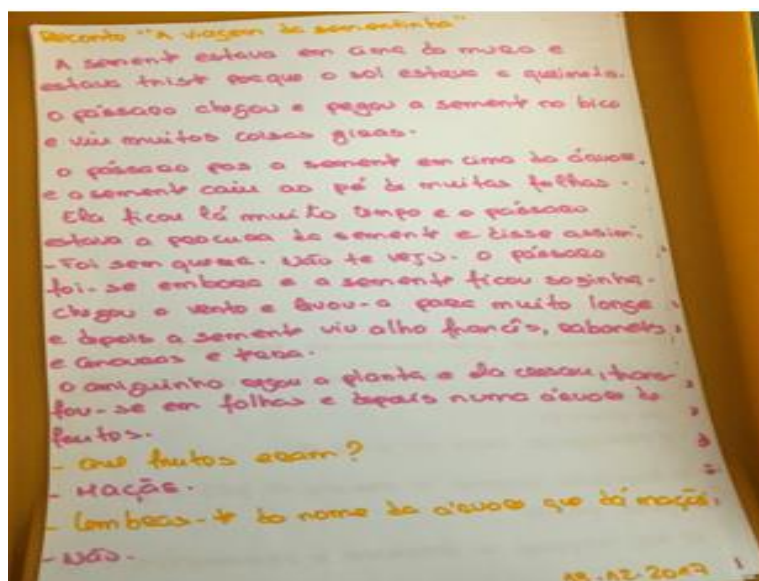 Reconto "A viagem da sementinha"
A semente estava em cima do muro e
estava triste porque o sol estava a queimala.
O pássaro chegou e pegou a semente no bico
e viu muitos coisas giras.
O pássaro pos a semente em cima da árvore,
e a semente caiu ao pé de muitas folhas.
Ela ficou lá muito tempo e o pássaro
estava a procura da semente e disse assim:
- Foi sem querer. Não te vejo. O pássaro
foi-se embora e a semente ficou sozinha.
Chegou o vento e levou-a para muito longe
e depois a semente viu alho francês, rabanets
e cenouras e terra.
O amiguinho regou a planta e ela cresceu, trans
fou-se em folhas e depois numa árvore de
frutos.
- Que frutos eram?
- Maçãs.
- Lembras-te do nome da árvore que dá maçãs,
- Não.
-2017